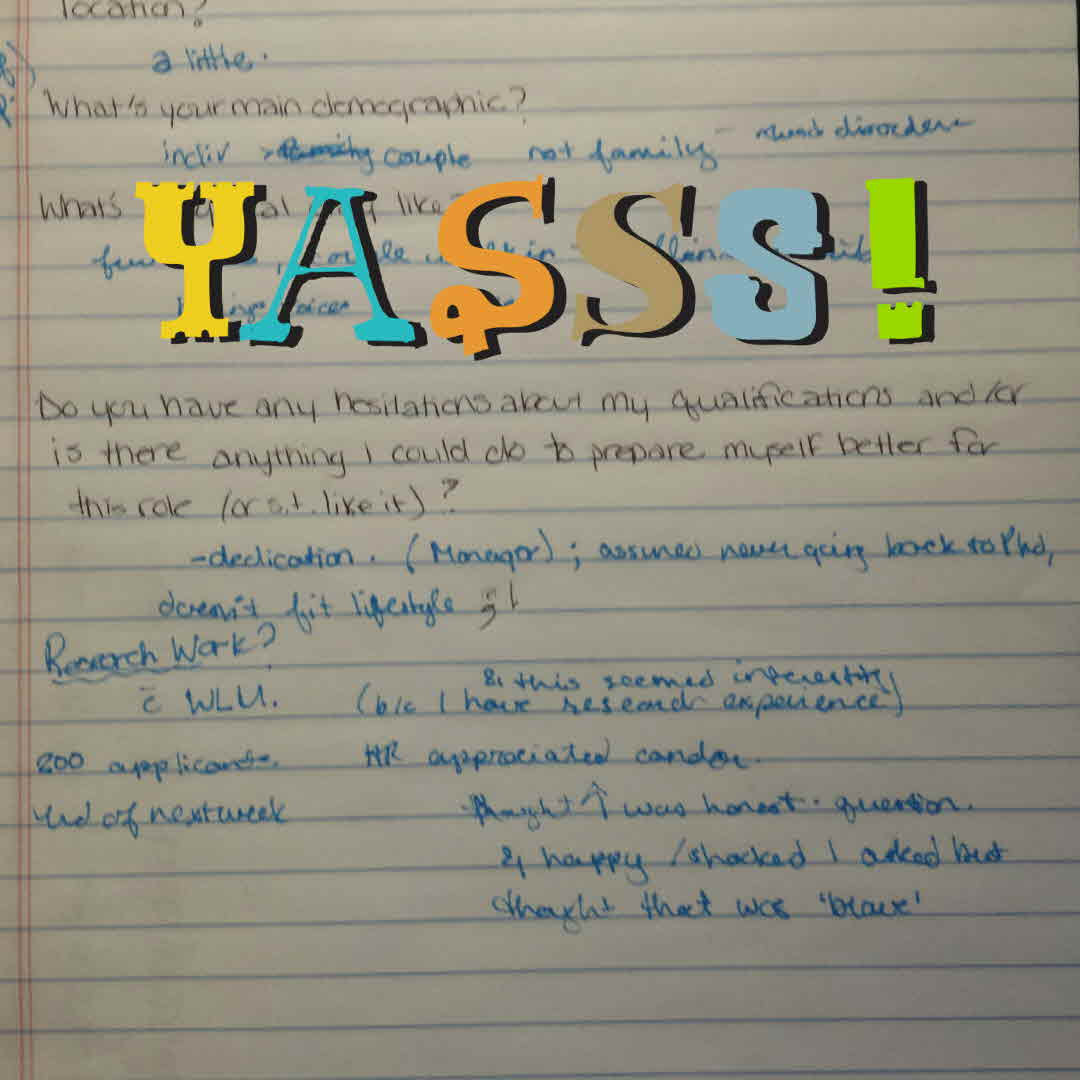 location?
a little.
What's your main demographic?
indiv > couple not family - mood disorders
What's like
YASSS!
in
voices
Do you have any hesitations about my qualifications and/or
is there anything I could do to prepare myself better for
this role (or s.t. like it)?
-dedication. (Manager); assumes never going back to PhD,
doesn't fit lifestyle
Research Work?
& this seemed interesting
c̄ WLU. (b/c I have research experience)
200 applicants. HR appreciated candor.
end of next week thought ↑ was honest. question.
& happy/shocked I asked but
thought that was 'brave'